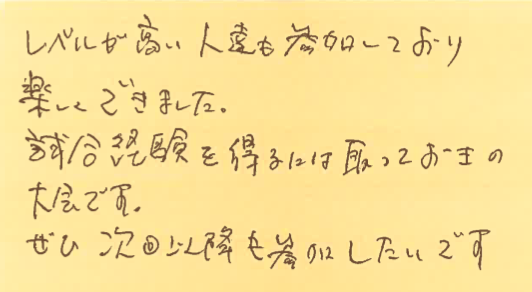 レベルが高い人達も参加しており
楽しくできました。
試合経験を得るには取っておきの
大会です。
ぜひ次回以降も参加したいです